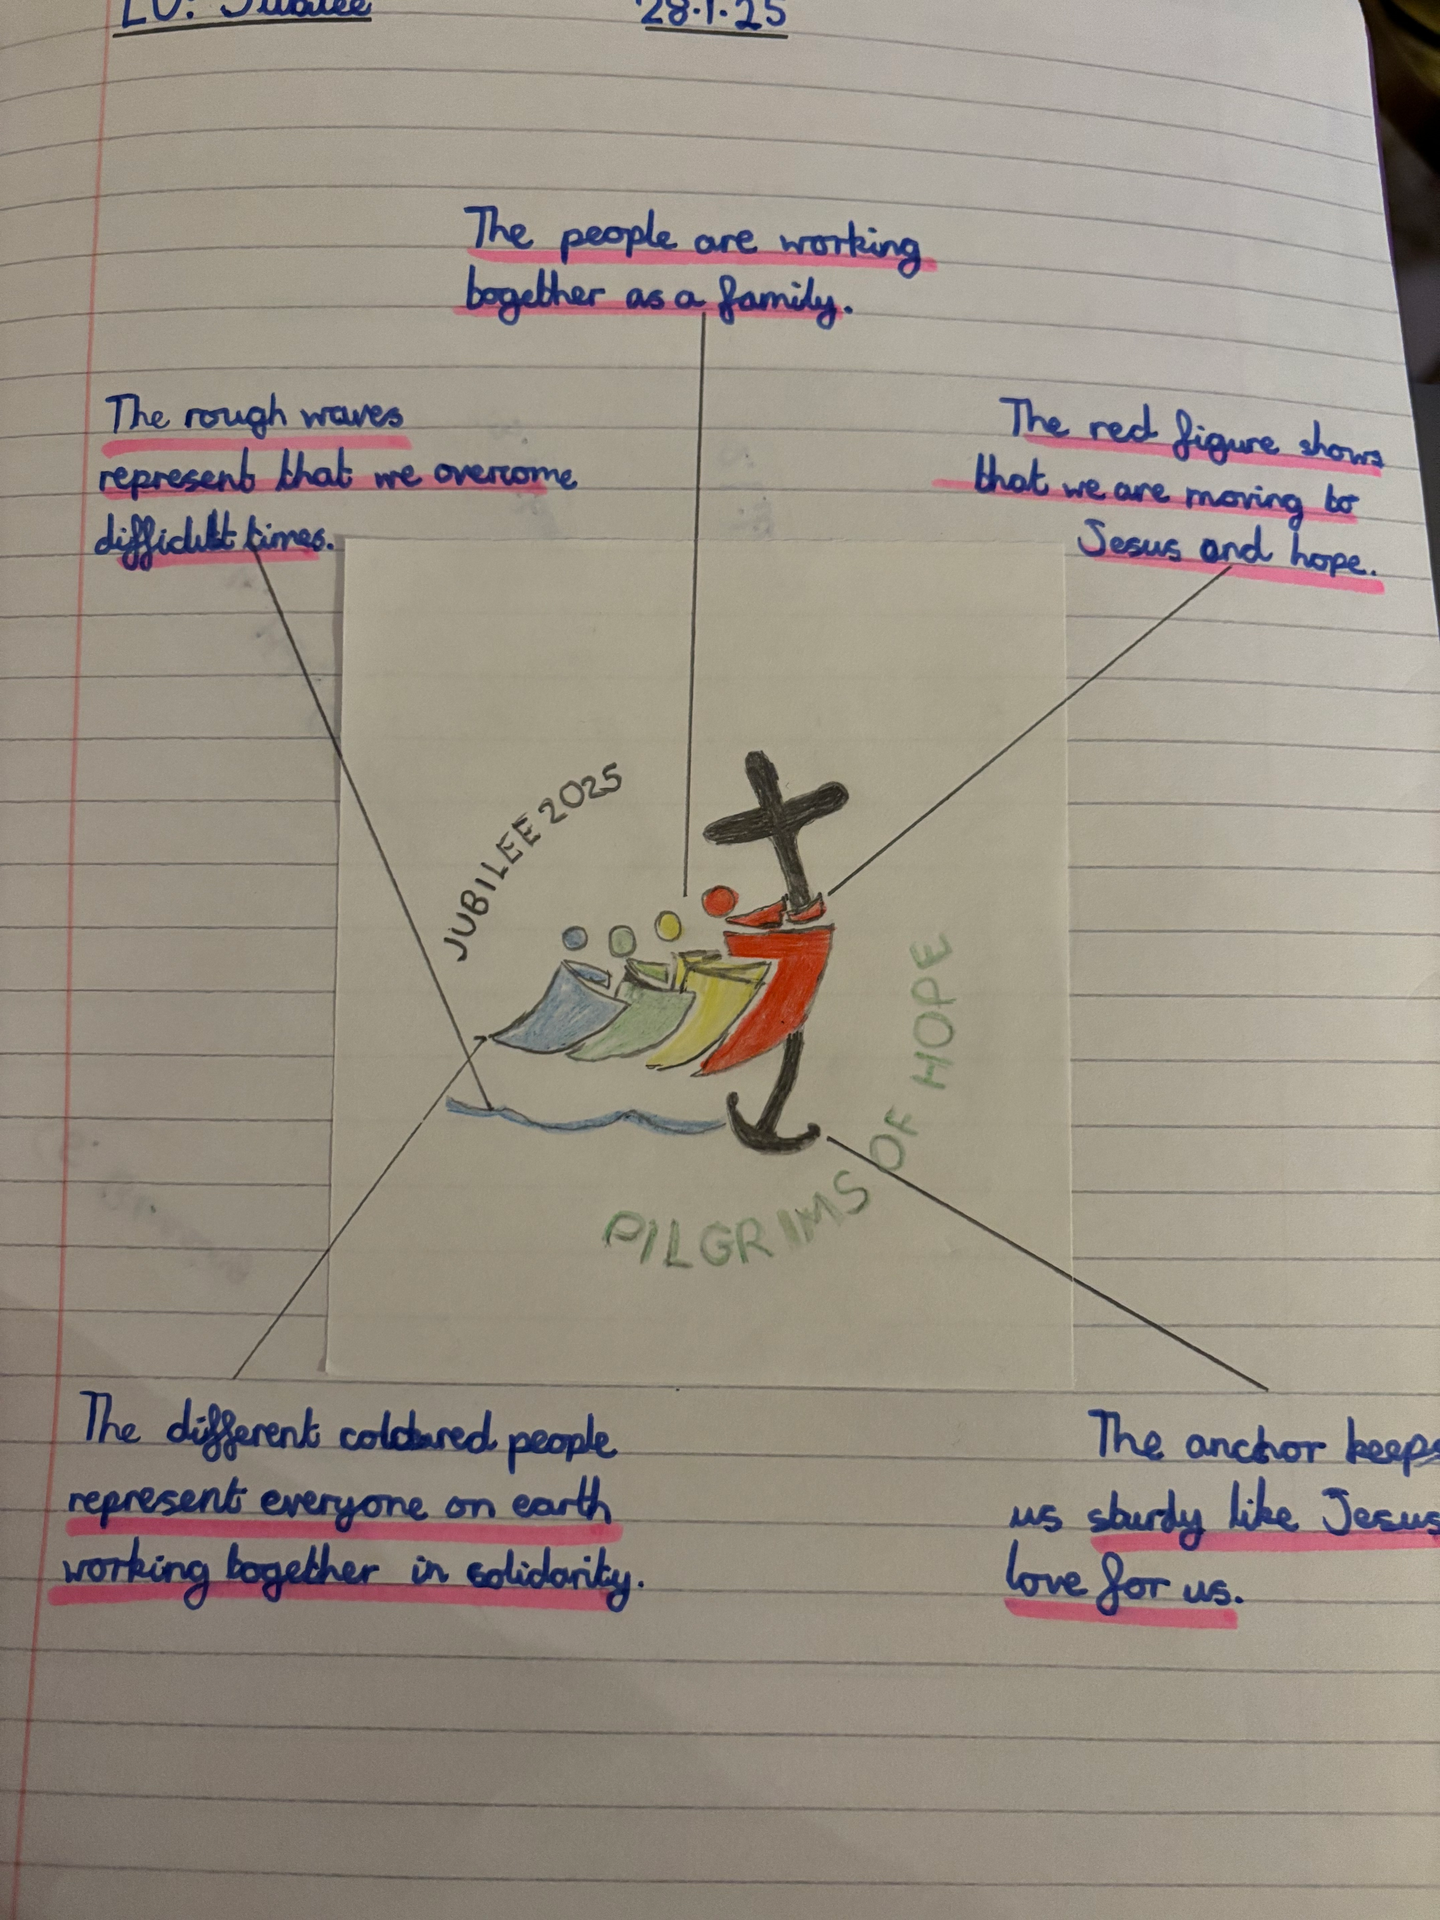 LO: Jubilee 28.1.25
The people are working
together as a family.
The rough waves
represent that we overcome
difficult times.
The red figure shows
that we are moving to
Jesus and hope.
JUBILEE 2025
PILGRIMS OF HOPE
The different coloured people
represent everyone on earth
working together in solidarity.
The anchor keeps
us sturdy like Jesus
love for us.